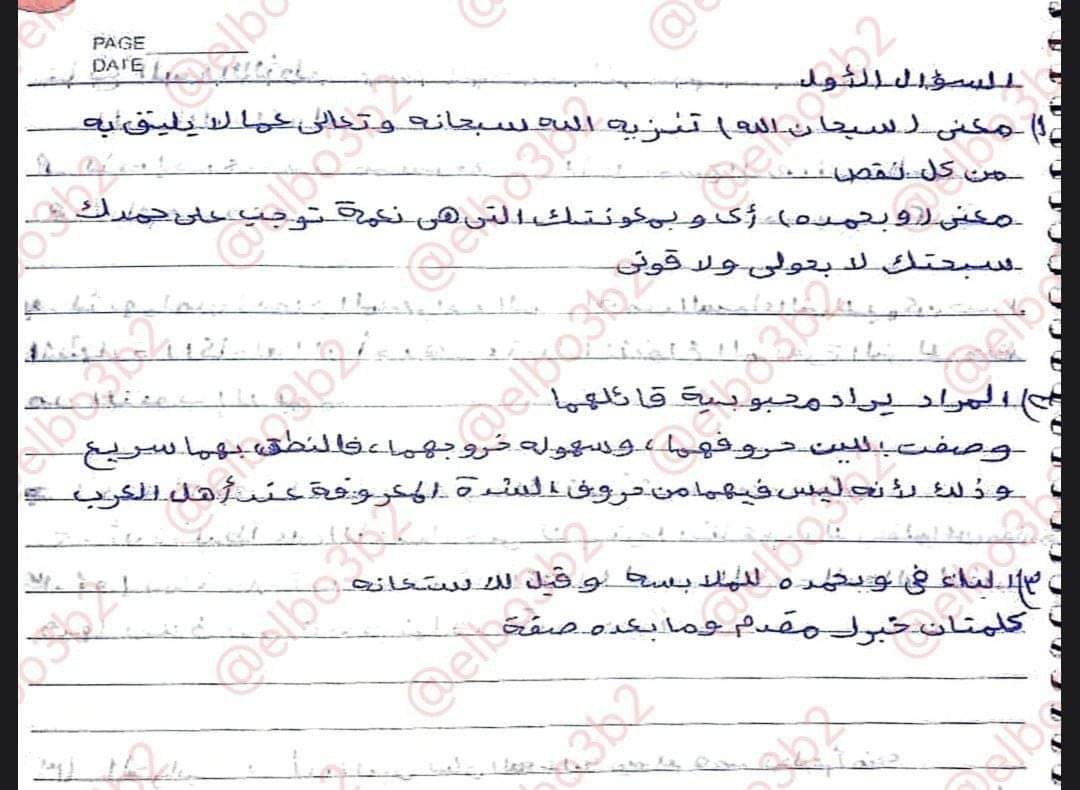 PAGE
DATE
السؤال الأول
١) معنى (سبحان الله) تنزيه الله سبحانه وتعالى عما لا يليق به
من كل نقص
معنى (وبحمده) أى وبمعونتك التى هى نعمة توجب على حمدك
سبحتك لا بحولى ولا قوتى
٢) المراد يراد محبوبية قائلهما
وصفت بلين حروفهما، وسهوله خروجهما، فالنطق بهما سريع
وذلك لأنه ليس فيهما من حروف الشدة المعروفة عند أهل العرب
٣) الباء فى وبحمده للملابسه وقيل للاستعانه
كلمتان خبر مقدم وما بعده صفة
@elbo3b2